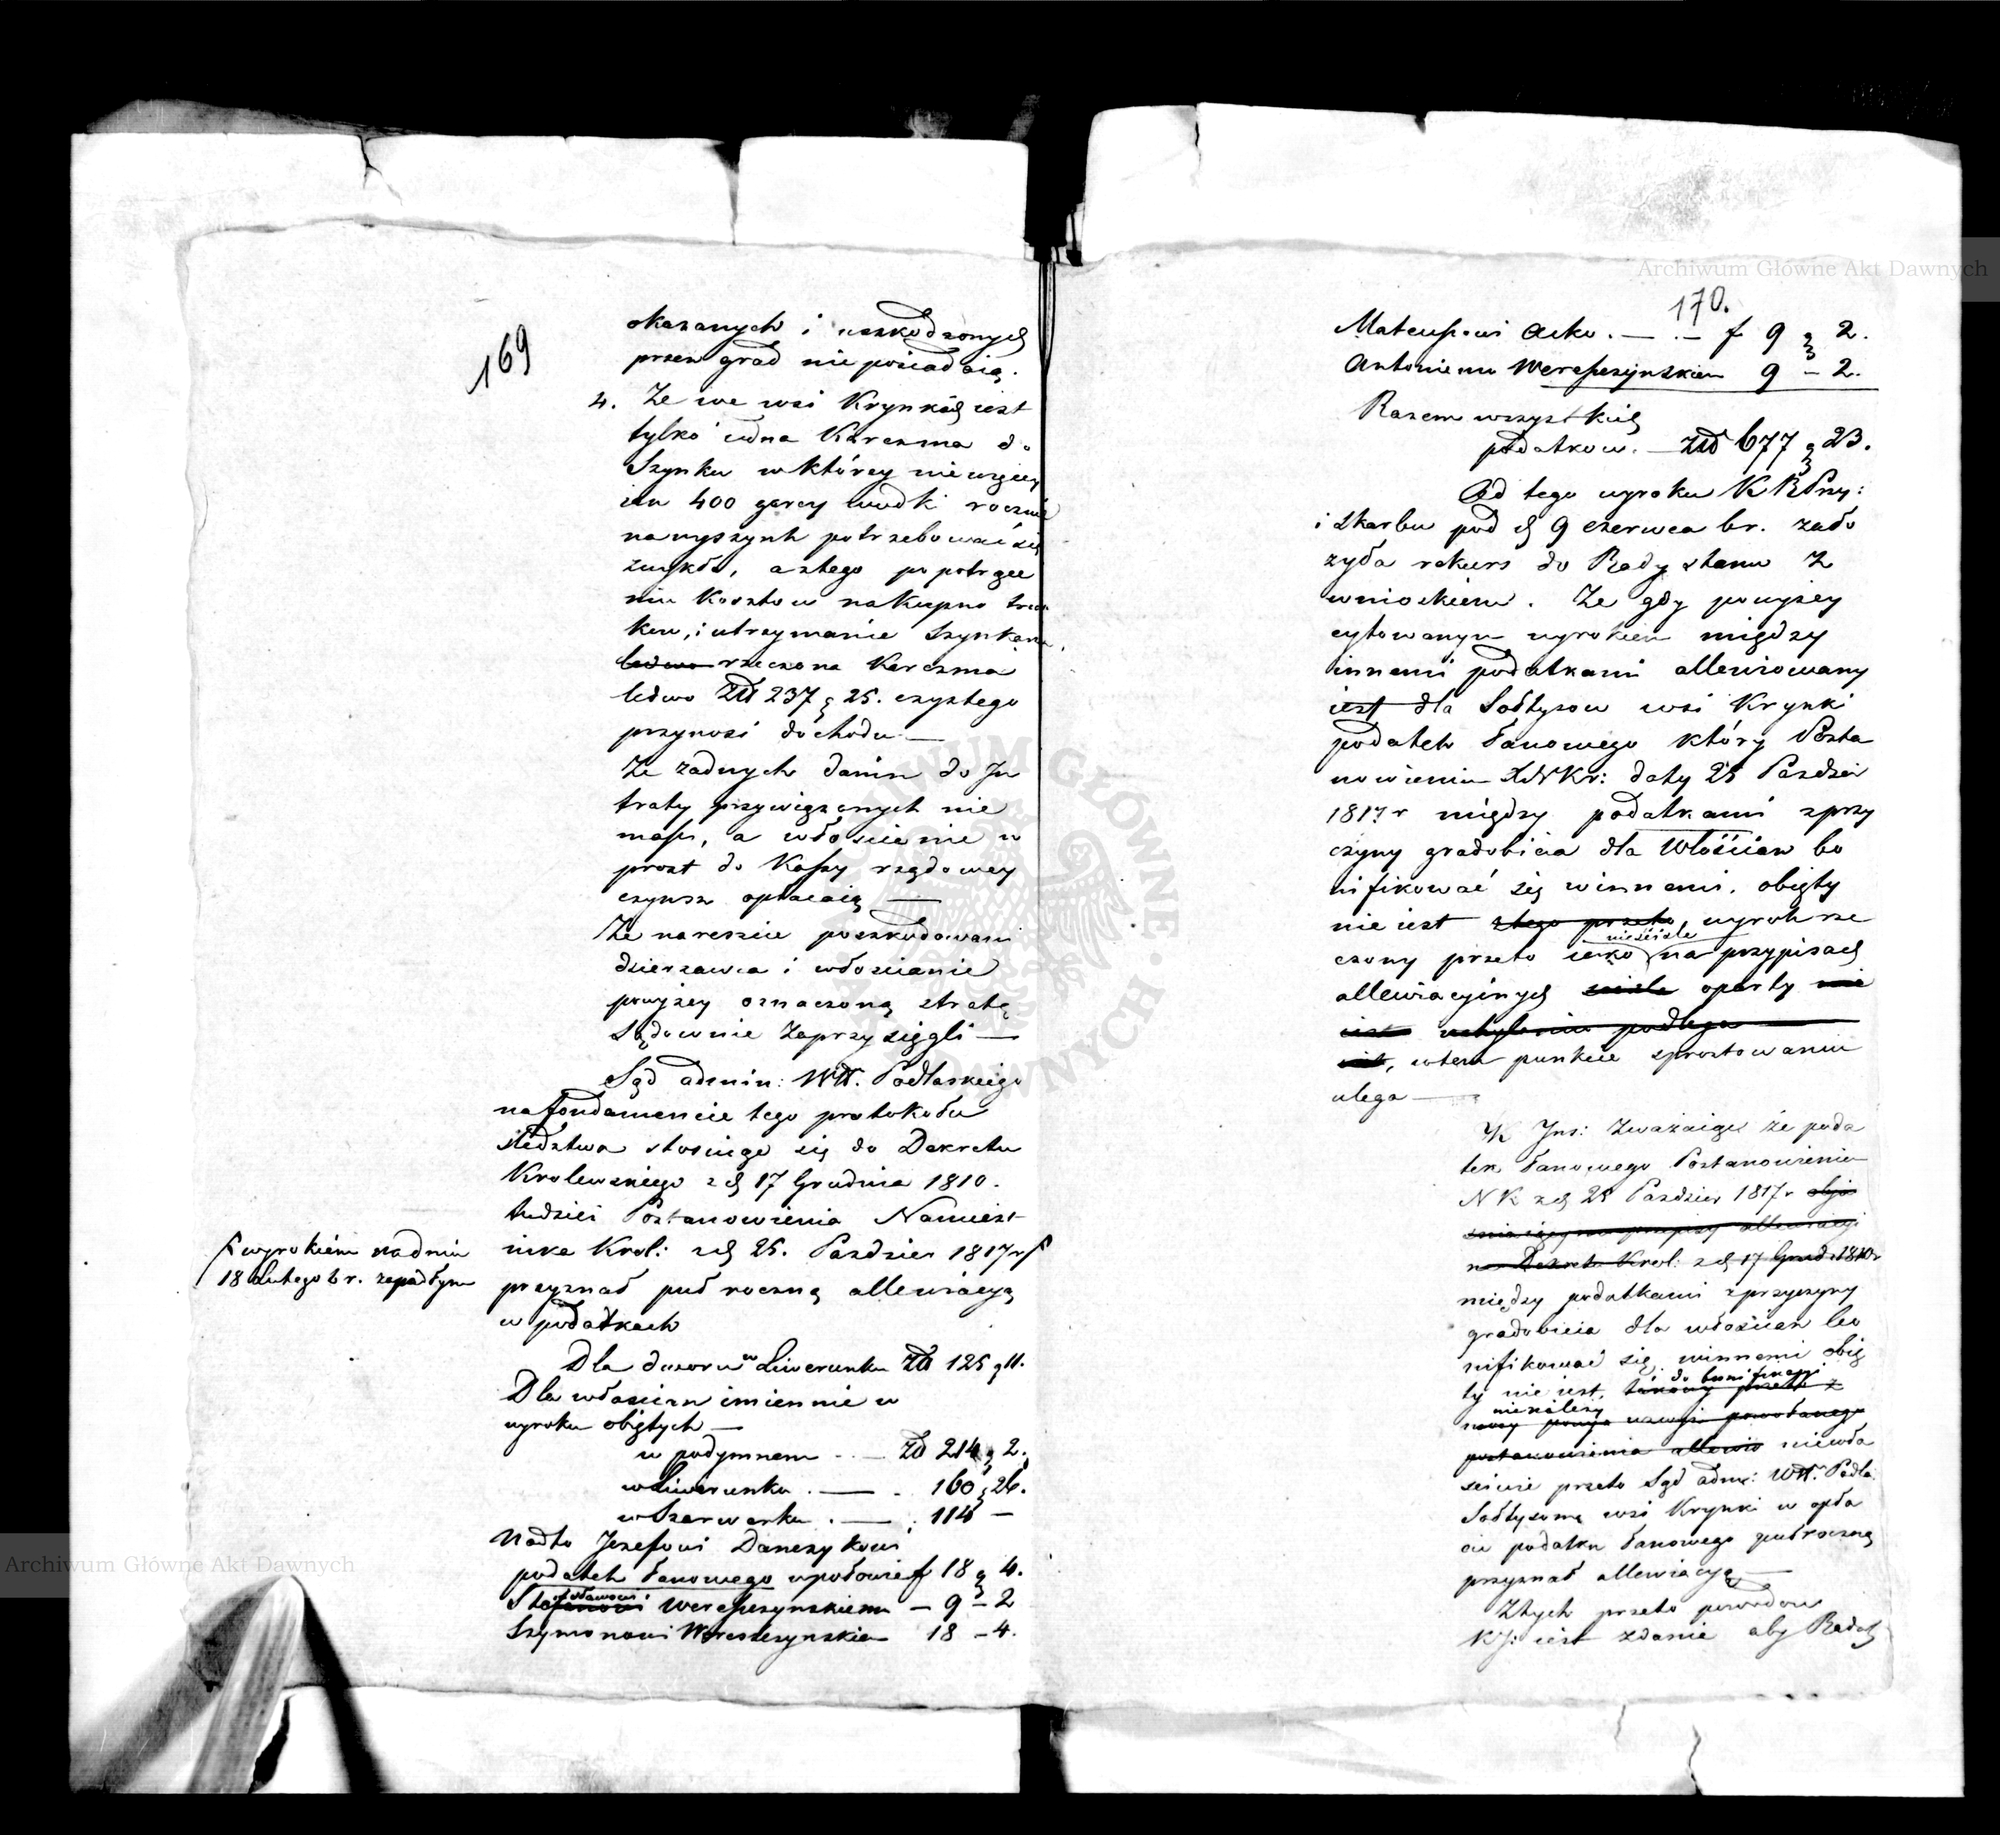 169
okazanych i uszkodzonych
przez grad nie posiadaią.
4. Ze we wsi Krynkach iest
tylko iedna Karczma do
Szynku w którey niewięcey
iak 400 garcy wodki rocznie
na wyszynk potrzebować się
zwykło, a ztego po potrące
niu Kosztow na Kupno trun
kow, i utrzymanie Szynkarza
ledwo rzeczona Karczma
ledwo Złł 237 g 25. czystego
przynosi dochodu —
Ze żadnych danin do In
traty przywiązanych nie
masz, a włościanie w
prost do Kassy rządowey
czynsz opłacaią —
Ze nareszcie poszkodowani
dzierzawca i włościanie
powyżey oznaczoną stratę
Sądownie zaprzysięgli —
Sąd admin: Wtt. Podlaskiego
na fondamencie tego protokołu
śledztwa stosuiąc się do Dekretu
Krolewskiego z d 17 Grudnia 1810.
tudzież Postanowienia Namiest
nika Krol: z d 25. Pazdzier 1817 r f
f wyrokiem na dniu
18 Lutego b r. zapadłym
przyznał puł roczną allewiacyą
w podatkach
Dla dworu w Liwerunku Złł 125 g 11.
Dla włościan imiennie w
wyroku obiętych —
w podymnem - — Zł 214 g 2.
w Liwerunku . — . 160 g 26.
w Szarwarku . — . 114 —
Nadto Jozefowi Danczykowi
podatek łanowego w połowie f 18 g 4.
Stefanowi Wereszczynskiemu — 9 — 2
Szymonowi Wereszczynskiem 18 — 4.
170.
Mateuszowi Acko . — . — f 9 g 2.
Antoniemu Wereszczynskiem 9 — 2.
Razem wszystkich
podatkow. — Złł 677 g 23.
Od tego wyroku K R Przy:
i Skarbu pod d 9 czerwca br. zało
żyła rekurs do Rady stanu z
wnioskiem. Ze gdy powyżey
cytowanym wyrokiem między
innemi podatkami allewiowany
iest dla Sołtysow wsi Krynki
podatek łanowego który Posta
nowieniem XNKr: daty 25 Pazdzier
1817 r między podatkami z przy
czyny gradobicia dla Włościan bo
nifikować się winnemi, obięty
nie iest ztego przeto, wyrok rze
czony przeto iako nieściśle na przypisach
allewiacyinych ściśle oparty nie
iest uchyleniu podlega —
, wtem punkcie sprostowaniu
ulega —
K Ins: Zważaiąc że poda
tek łanowego Postanowieniem
N K z d 25 Pazdzier 1817 r obja
śniaiącym przepisy allewiacyi
Dekretu Krol: z d 17 Grud: 1810 r
między podatkami z przyczyny
gradobicia dla włościan bo
nifikować się winnemi obię
ty nie iest, do bonifikacyi
nienależy powołanego
postanowienia niewła
ściwie przeto Sąd adm: Wtt. Podla:
Sołtysom wsi Krynki w opła
cie podatku łanowego pułroczną
przyznał allewiacyą —
Ztych przeto powodow
KJ: iest zdanie aby Rada
Archiwum Główne Akt Dawnych
Archiwum Główne Akt Dawnych
ARCHIWUM GŁÓWNE AKT DAWNYCH